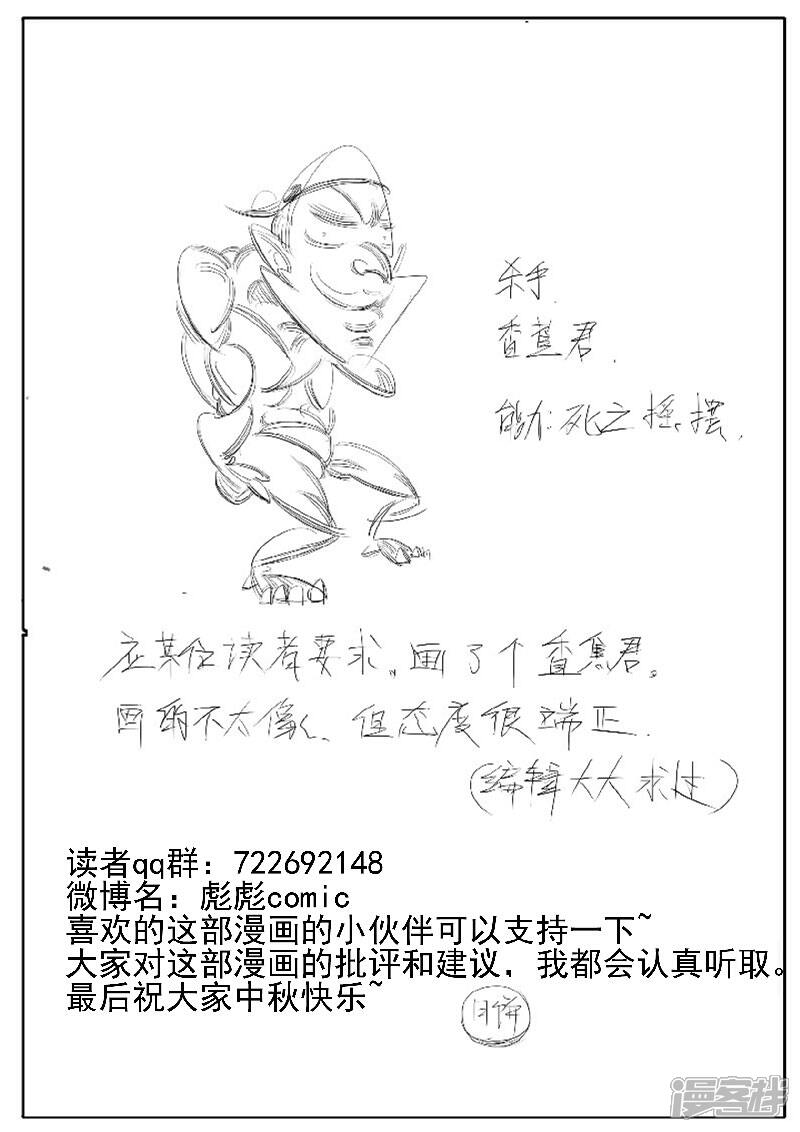 杀手
香蕉君.
能力:死之摇摆.
应某位读者要求,画了个香蕉君。
画的不太像、但态度很端正.
(编辑大大求过)
读者qq群：722692148
微博名：彪彪comic
喜欢的这部漫画的小伙伴可以支持一下~
大家对这部漫画的批评和建议，我都会认真听取。
最后祝大家中秋快乐~
月饼
漫客栈